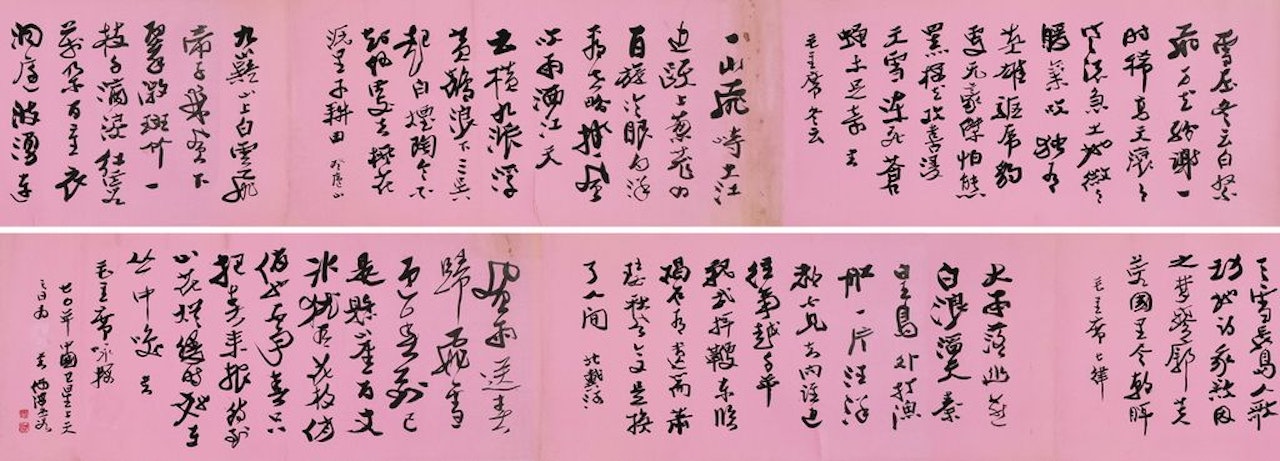 雪压冬云白絮
飛万花纷謝一
时稀高天滚滚
寒流急大地微微
暖氣吹独有
英雄驱虎豹
更无豪傑怕熊
罴梅花歡喜漫
天雪凍死蒼
蝇未足奇
毛主席冬云
一山飛峙大江
边躍上葱茏四
百旋冷眼向洋
看世界热風
吹雨洒江天
云横九派浮
黄鶴浪下三吴
起白煙陶令不
知何處去桃花
源里可耕田 登廬山
九嶷山上白雲飛
帝子乘風下
翠微斑竹一
枝千滴淚红霞
萬朵百重衣
洞庭波湧连
天雪長島人歌
动地詩我欲因
之夢寥廓芙
蓉國里尽朝晖
毛主席七律
大雨落幽燕
白浪滔天秦
皇島外打漁
船一片汪洋
都不見知向谁边
往事越千年
魏武挥鞭东临
碣石有遺篇萧
瑟秋風今又是换
了人间 北戴河
風雨送春
歸飛雪
迎春到已
是懸崖百丈
冰犹有花枝俏
俏也不争春只
把春来报待到
山花烂漫時她在
丛中笑
毛主席咏梅